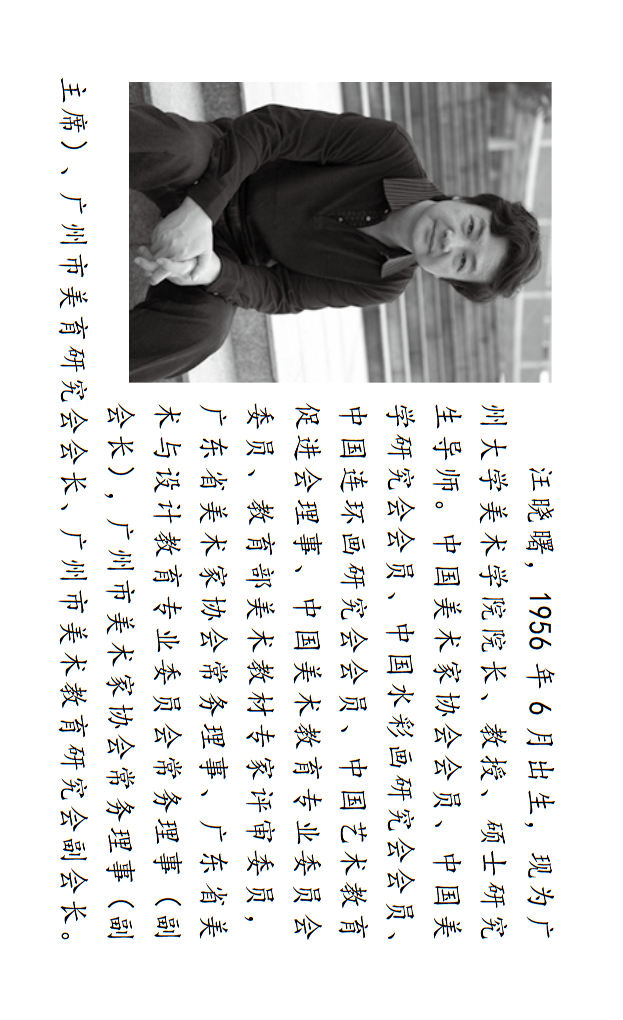 汪晓曙，1956年6月出生，现为广
州大学美术学院院长、教授、硕士研究
生导师。中国美术家协会会员、中国美
学研究会会员、中国水彩画研究会会员、
中国连环画研究会会员、中国艺术教育
促进会理事、中国美术教育专业委员会
委员、教育部美术教材专家评审委员，
广东省美术家协会常务理事、广东省美
术与设计教育专业委员会常务理事（副
会长），广州市美术家协会常务理事（副
主席）、广州市美育研究会会长、广州市美术教育研究会副会长。